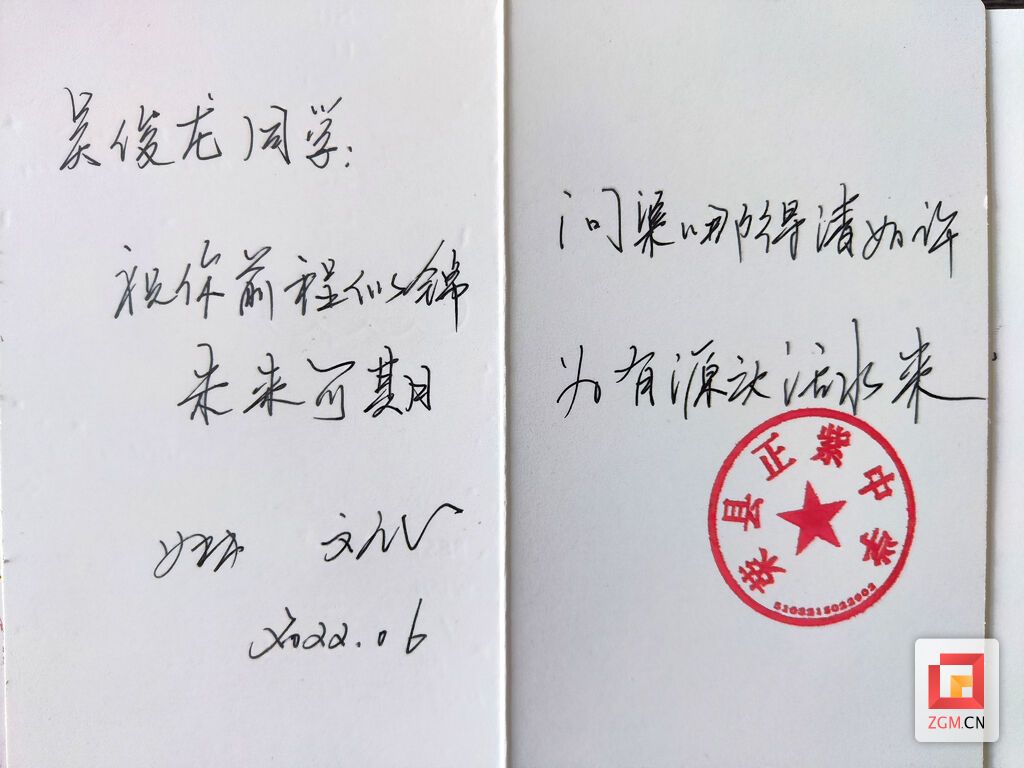 吴俊龙同学:
祝你前程似锦
未来可期
2022.06
问渠哪得清如许
为有源头活水来
荣县正紫中学
ZGM.CN